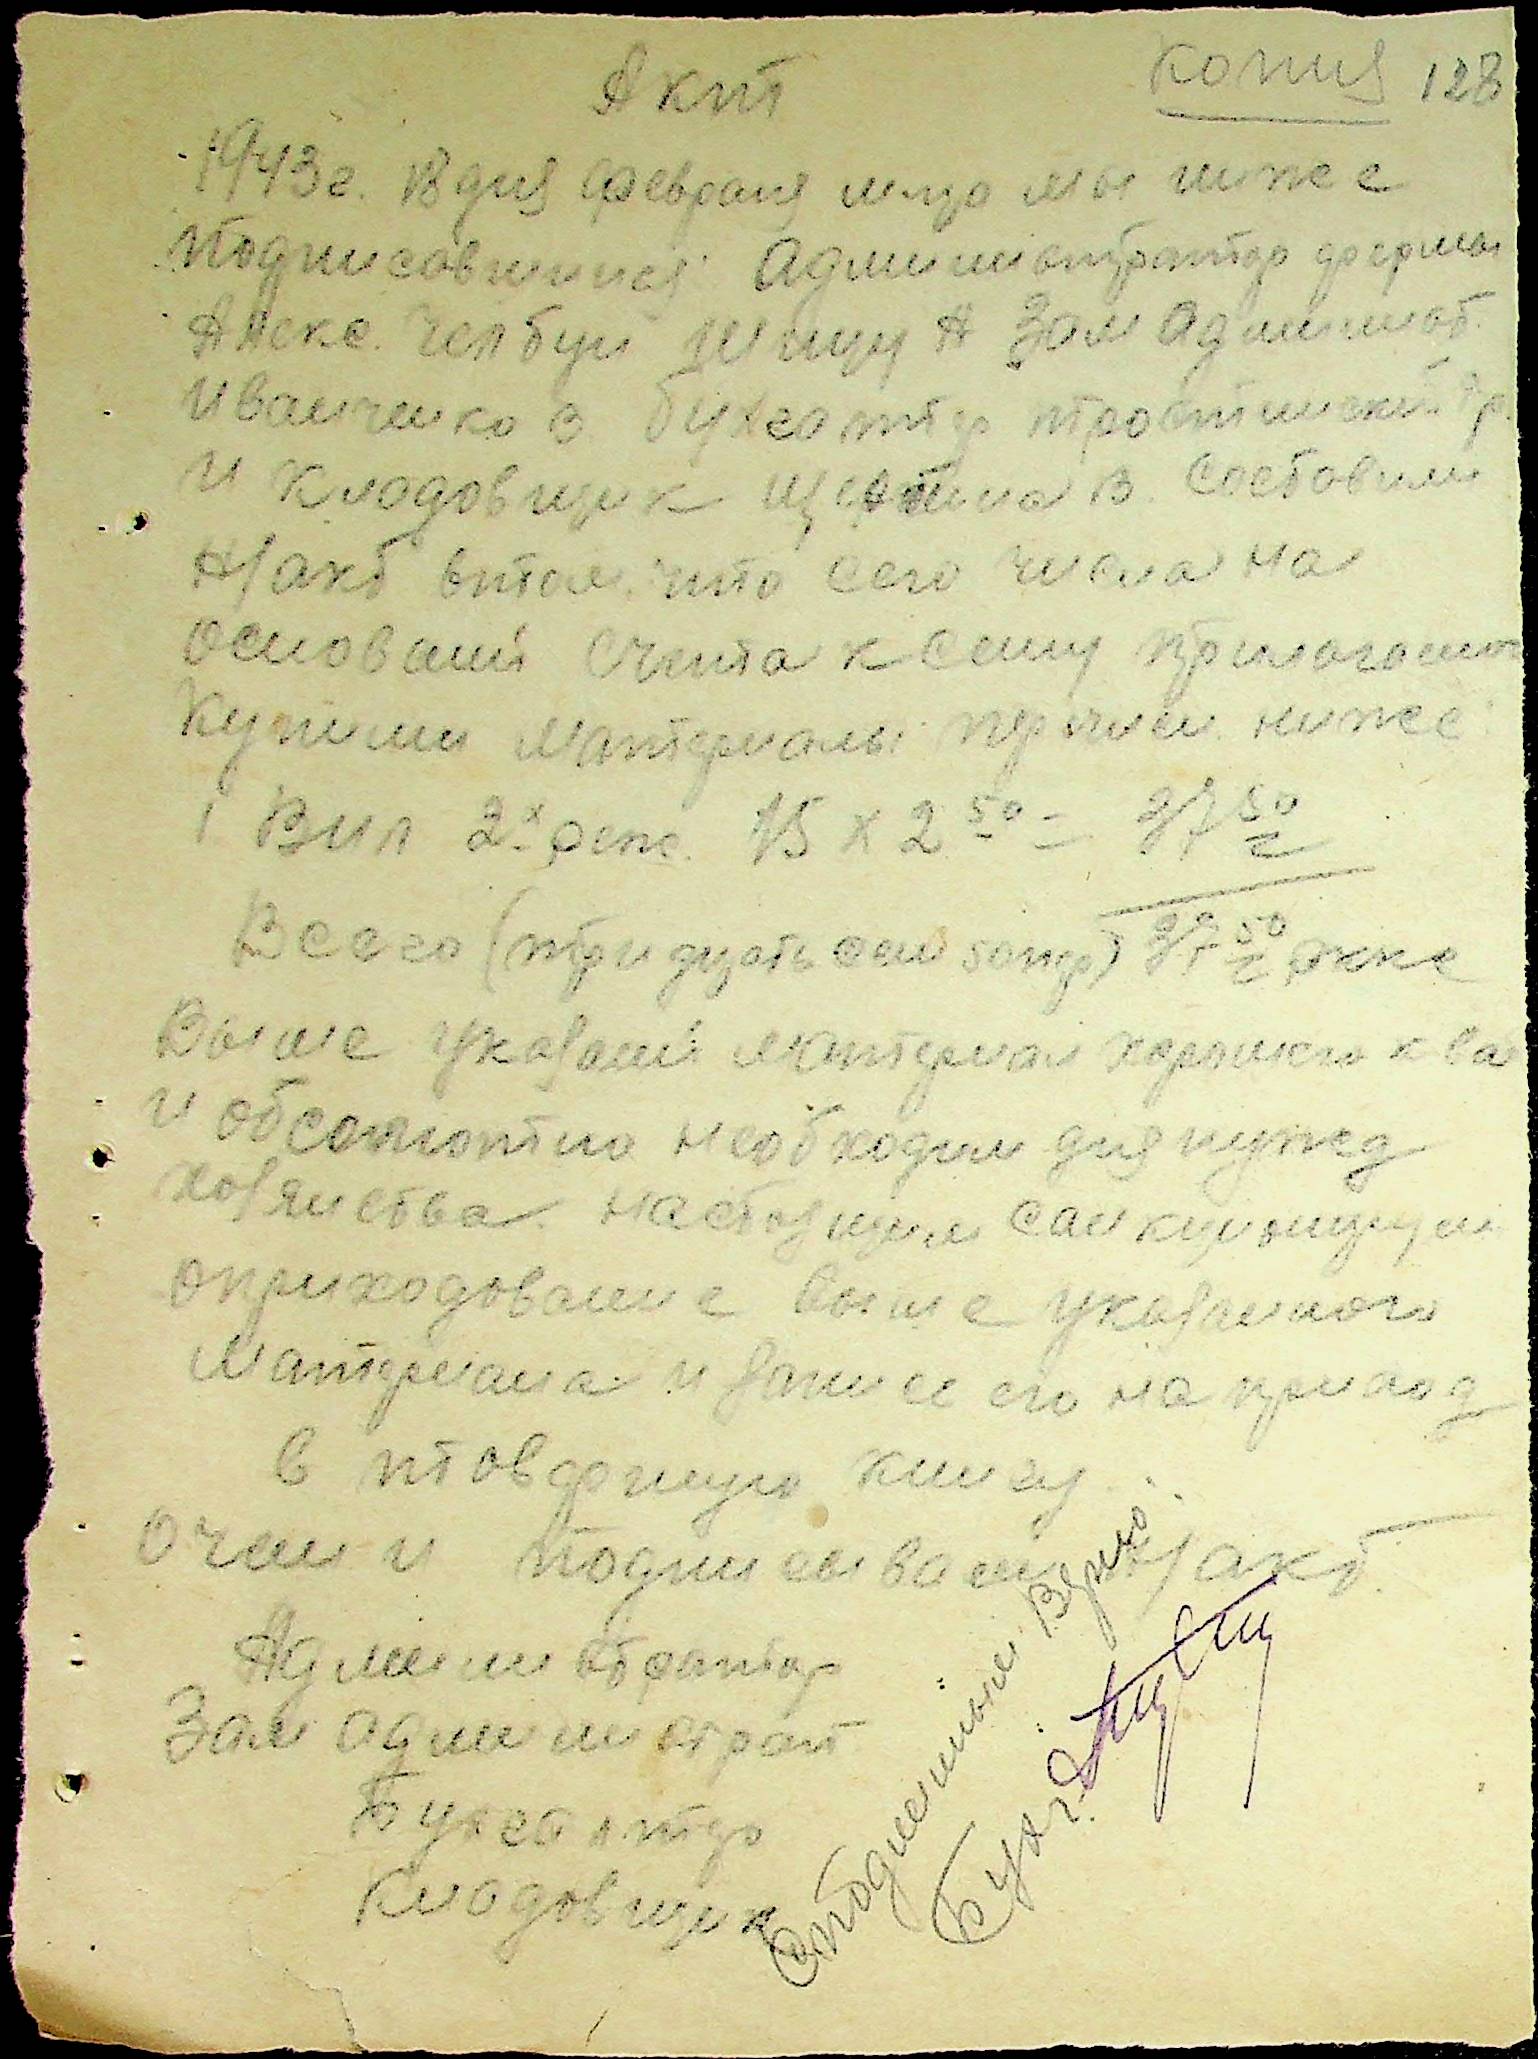 Копия 128
Акт
1943 г. 18 дня февраля м-ца мы ниже
подписавшиися: Администратор фермы
Алекс. Челбул А Зам Админист.
Иванченко В. бухгалтер
и кладовщик Щетина В. составили
н/акт втом, что сего числа на
основании счета к сему прилагаемо
купили материалы перечисл. ниже:
1 Вил 2х рож. 15 х 2 50 = 37 50
Всего (тридцать сем 50 пф) 37 50
Выше указаний материал хорошего к-ва
и обсолютно необходим для нужд
хозяиства. Настоящим санкционируем
оприходование выше указанного
материала и запись его на приход
в товарную книгу.
О чем и подписываем н/акт.
Администратор
Зам администрат
Бухгалтер
Кладовщик
Сподлинным Верно:
Бухг.